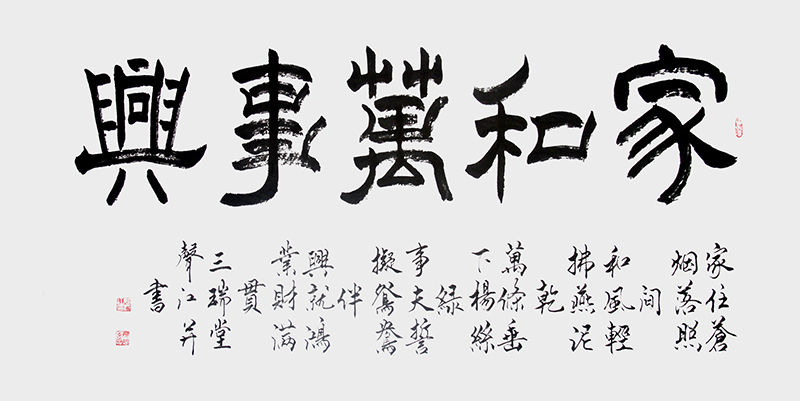 家和萬事興
家住蒼
烟落照
间
和風輕
拂燕泥
乾
萬條垂
下楊絲
緑
事夫誓
擬鴛鴦
伴
興就鴻
業財满
貫
三瑞堂
聲江并
書